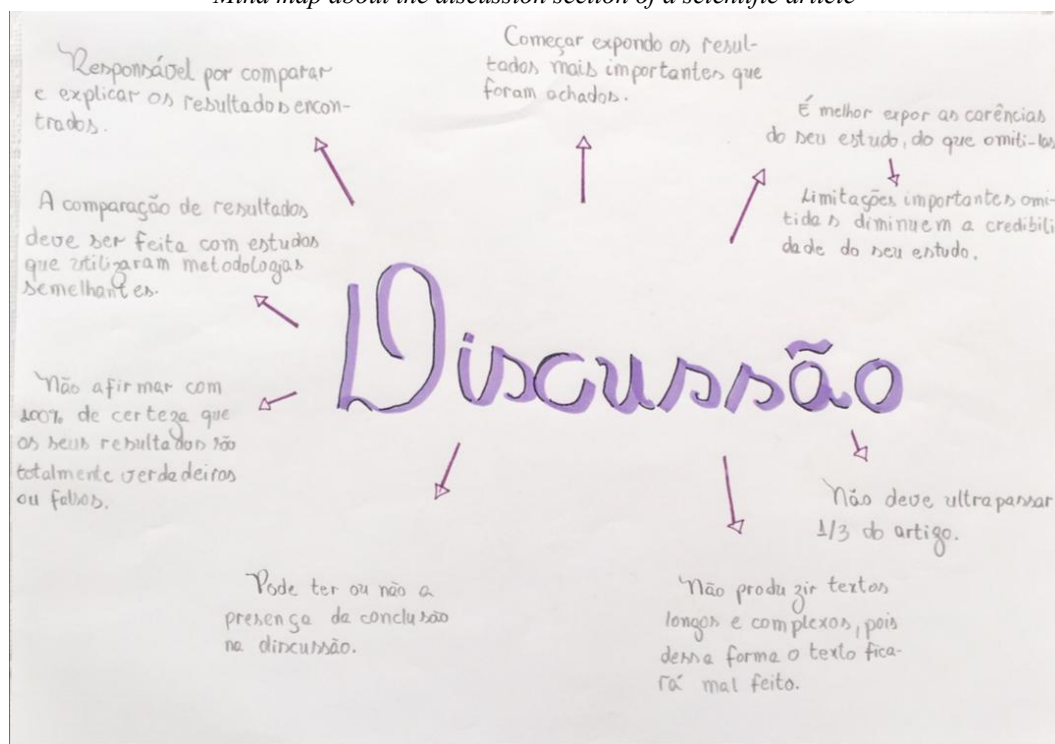 Mind map about the discussion section of a scientific article
Responsável por comparar
e explicar os resultados encon-
trados.
Começar expondo os resul-
tados mais importantes que
foram achados.
É melhor expor as carências
do seu estudo, do que omiti-las
Limitações importantes omi-
tidas diminuem a credibili
dade do seu estudo.
A comparação de resultados
deve ser feita com estudos
que utilizaram metodologias
semelhantes.
Discussão
Não afirmar com
100% de certeza que
os seus resultados são
totalmente verdadeiros
ou falsos.
Não deve ultrapassar
1/3 do artigo.
Pode ter ou não a
presença da conclusão
na discussão.
Não produzir textos
longos e complexos, pois
dessa forma o texto fica-
rá mal feito.